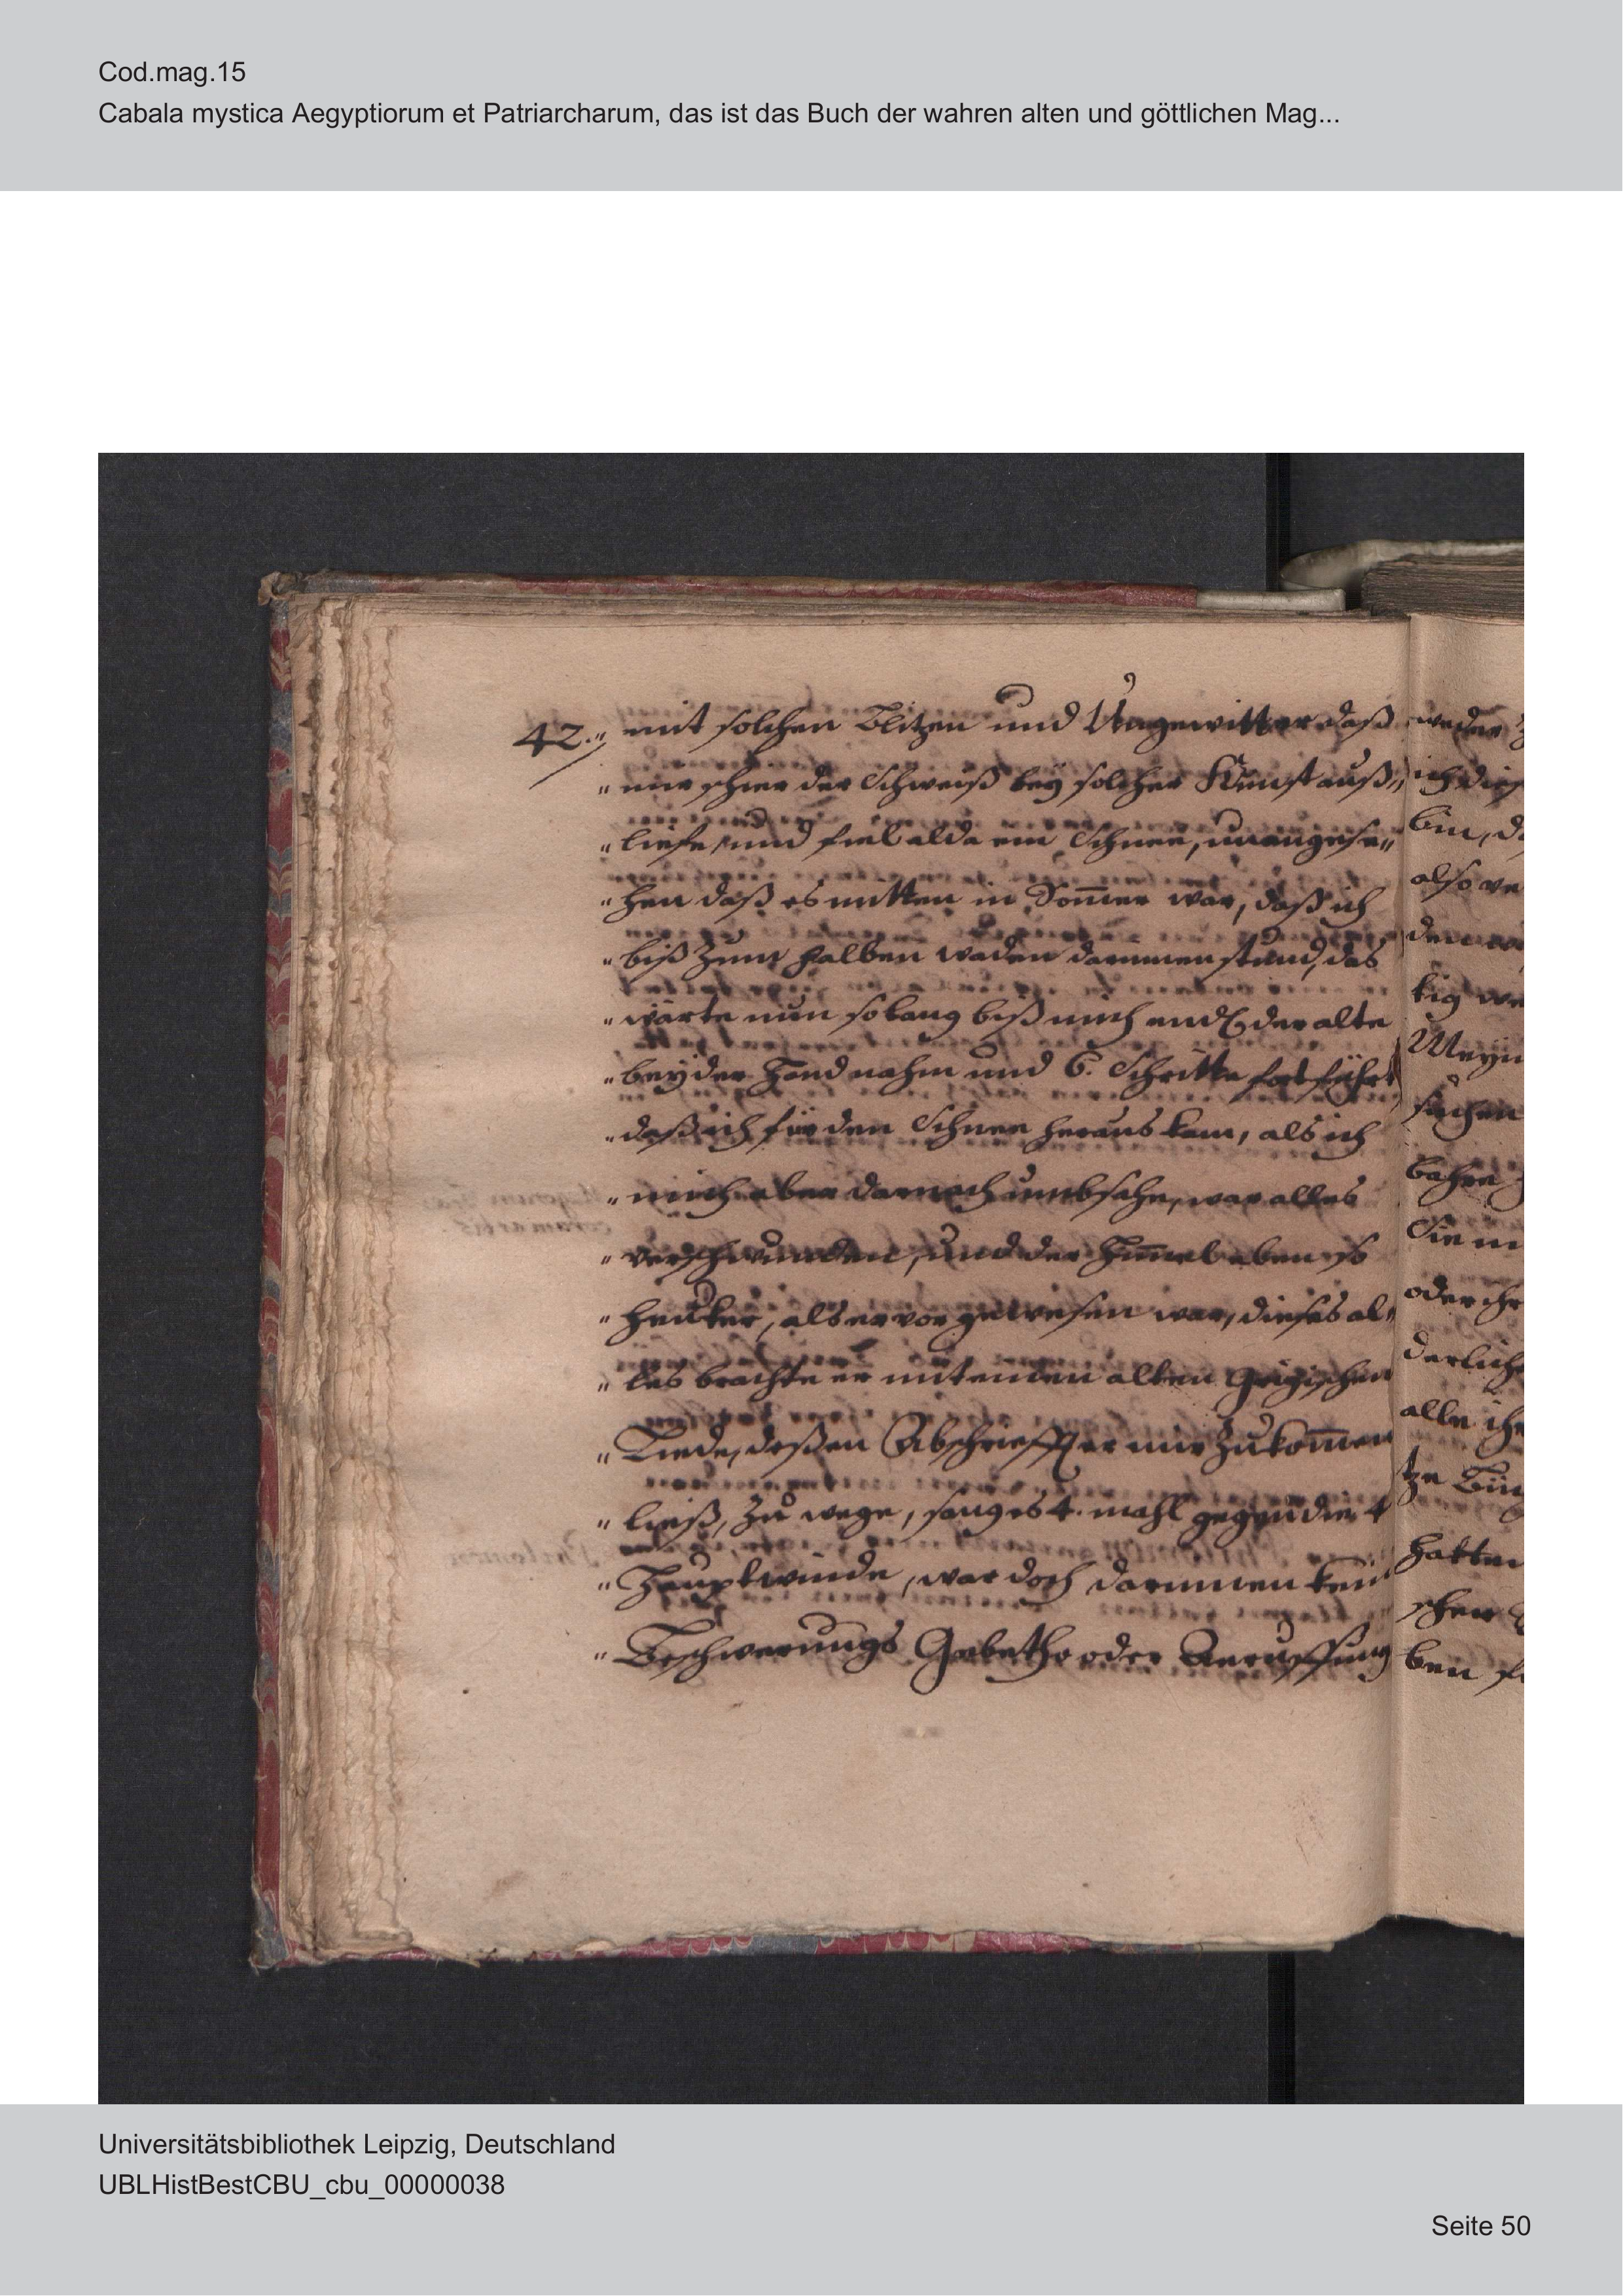 Cod.mag.15
Cabala mystica Aegyptiorum et Patriarcharum, das ist das Buch der wahren alten und göttlichen Mag...
42. „ mit solchen Blitzen und Ungewitter daß
„ mir schier der Schweiß bey solcher Kunst auß„
„ liefe, und fiel alda ein Schnee, unangese„
„ hen daß es mitten in Som̅er war, daß ich
„ biß zum halben waden darinnen stund, das
„ wärte nun solang biß mich endl. der alte
„ bey der Hand nahm und 6. Schritte fortführt
„ daß ich für den Schnee heraus kam, als ich
„ mich aber darnach umbsahe, war alles
„ verschwunden, und der Him̅el eben so
„ heiter, als er vor gewesen war, dieses al„
„ les brachte er mit einen alten
„ Liede, deßen Abschrifft er mir zukom̅en
„ ließ, zu wege, sang es 4. mahl gegen die 4
„ Hauptwinde, war doch darinnen kein
„ Beschwerungs Gebethe oder Anruffung
weder
ich
bin,
also
tig
sachen
bahre
Sie
oder ihr
derliche
alle
hatten
ben
Universitätsbibliothek Leipzig, Deutschland
UBLHistBestCBU_cbu_00000038
Seite 50